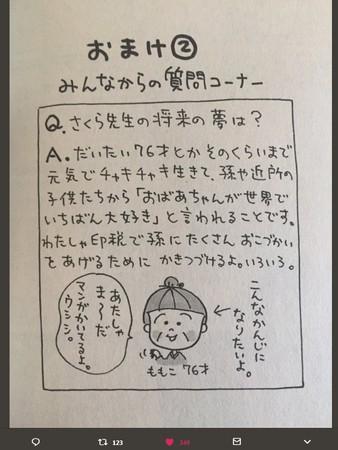 おまけ②
みんなからの質問コーナー
Q.さくら先生の将来の夢は?
A.だいたい76才とかそのくらいまで
元気でチャキチャキ生きて、孫や近所の
子供たちから「おばあちゃんが世界で
いちばん大好き」と言われることです。
わたしゃ印税で孫にたくさんおこづかい
をあげるためにかきつづけるよ。いろいろ。
こんなかんじに
なりたいよ。
あたしゃ
ま〜だ
マンガかいてるよ。
ウシシ。
ももこ 76才
123
348